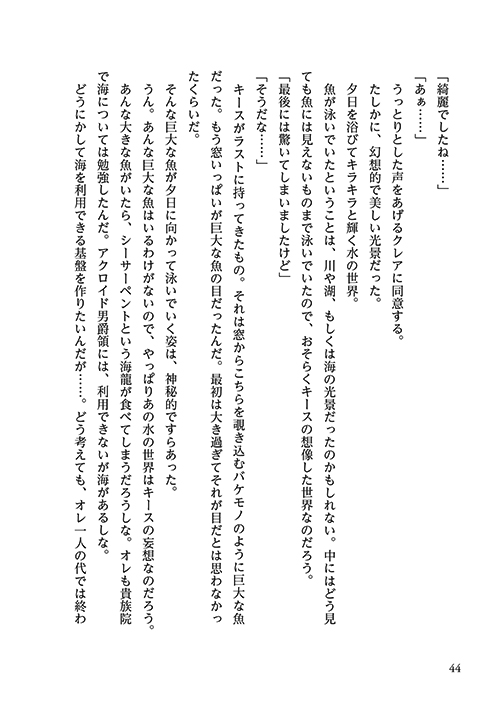 「綺麗でしたね……」
「あぁ……」
うっとりとした声をあげるクレアに同意する。
たしかに、幻想的で美しい光景だった。
夕日を浴びてキラキラと輝く水の世界。
魚が泳いでいたということは、川や湖、もしくは海の光景だったのかもしれない。中にはどう見
ても魚には見えないものまで泳いでいたので、おそらくキースの想像した世界なのだろう。
「最後には驚いてしまいましたけど」
「そうだな……」
キースがラストに持ってきたもの。それは窓からこちらを覗き込むバケモノのように巨大な魚
だった。もう窓いっぱいが巨大な魚の目だったんだ。最初は大き過ぎてそれが目だとは思わなかっ
たくらいだ。
そんな巨大な魚が夕日に向かって泳いでいく姿は、神秘的ですらあった。
うん。あんな巨大な魚はいるわけがないので、やっぱりあの水の世界はキースの妄想なのだろう。
あんな大きな魚がいたら、シーサーペントという海龍が食べてしまうだろうしな。オレも貴族院
で海については勉強したんだ。アクロイド男爵領には、利用できないが海があるしな。
どうにかして海を利用できる基盤を作りたいんだが……。どう考えても、オレ一人の代では終わ
44